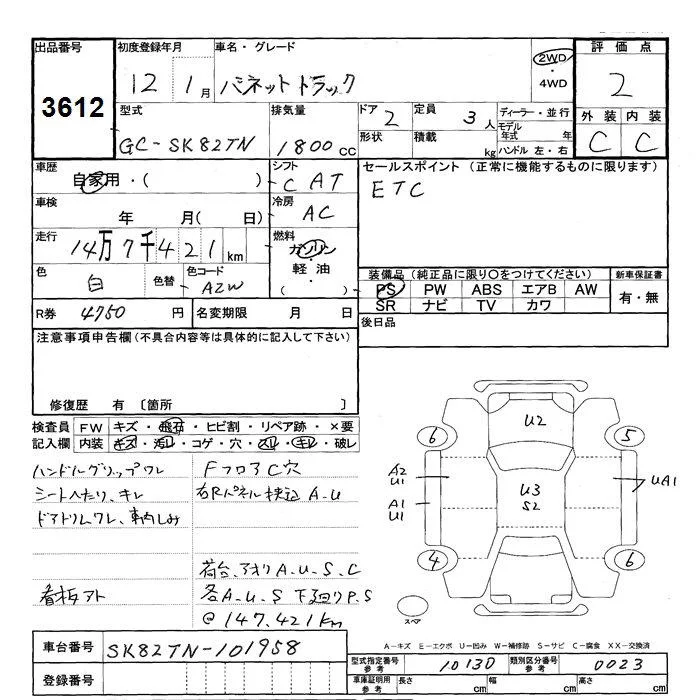 出品番号 初度登録年月 車名・グレード 評価点
3612 12 1月 バネットトラック 2WD ・4WD 2
型式 排気量 ドア 定員 ディーラー・並行 外装 内装
GC-SK82TN 1800cc 2 3人 モデル年式 年 C C
形状 積載 kg ハンドル 左・右
車歴 シフト セールスポイント (正常に機能するものに限ります)
自家用・( ) C AT ETC
車検 冷房
年 月( 日) AC
走行 燃料
14万7千421km ガソリン・
色 色替 色コード 軽油・
白 AZW ( )
装備品(純正品に限り○をつけてください) 新車保証書
PS PW ABS エアB AW 有・無
SR ナビ TV カワ
R券 4750円 名変期限 月 日 後日品
注意事項申告欄(不具合内容等は具体的に記入して下さい)
修復歴 有 〔箇所 〕
検査員 FW キズ・飛石・ヒビ割・リペア跡・×要
記入欄 内装 キズ・汚レ・コゲ・穴・スレ・キレ・破レ
ハンドルグリップワレ Fフロア C穴
シートへたり、キレ 右Rパネル検込 A-U
ドアトリムワレ、車内しみ
荷台、アオリ A.U.S.C
看板アト 各A-U-S 下廻りP.S
@147.421km
U2
6 5
A2 U1 U3 S2 UA1
A1 U1
4 6
スペア
A-キズ E-エクボ U-凹み W-補修跡 S-サビ C-腐食 XX-交換済
車台番号 SK82TN-101958
登録番号
型式指定番号 参考 1013D 類別区分番号 参考 0023
車庫証明用 参考 長さ cm 幅 cm 高さ cm